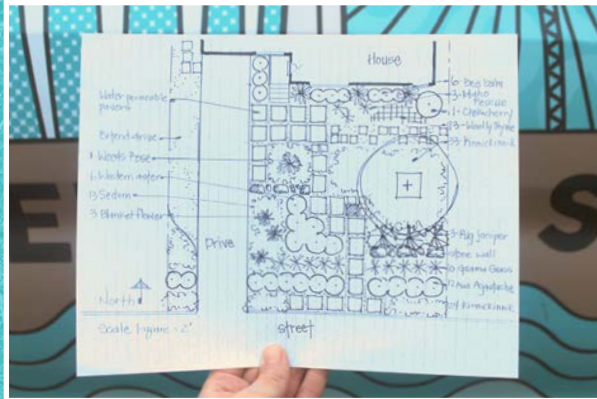 House
Water permeable
pavers
Extend drive
1 Woods Rose
Western aster
13 Sedum
3 Blanket flower
Drive
North
Scale 1 square = 2'
street
6 Bee balm
3 Idaho
Fescue
1 - Chokecherry
33 - Woolly Thyme
33 Kinnickinnik
3 - Mug Juniper
stone wall
Grama Grass
Kinnickinnik